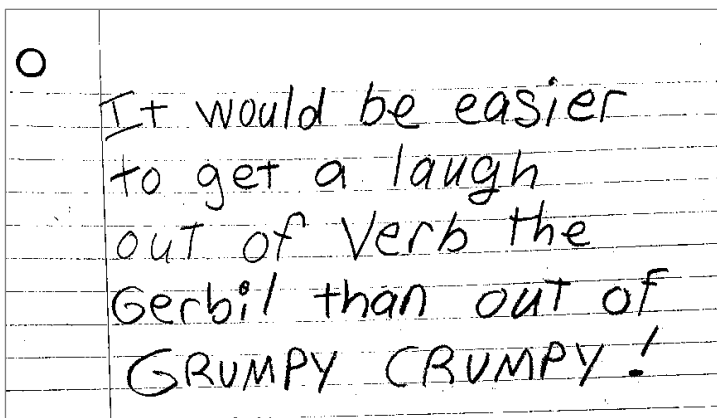 It would be easier
to get a laugh
out of Verb the
Gerbil than out of
GRUMPY CRUMPY!